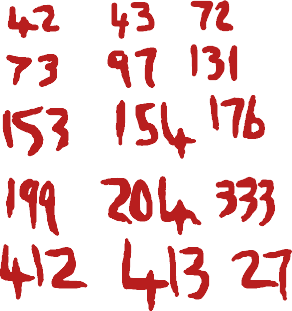 42 43 72
73 97 131
153 154 176
199 204 333
412 413 27